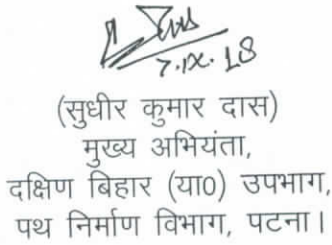 7.IX.18
(सुधीर कुमार दास)
मुख्य अभियंता,
दक्षिण बिहार (या०) उपभाग,
पथ निर्माण विभाग, पटना।